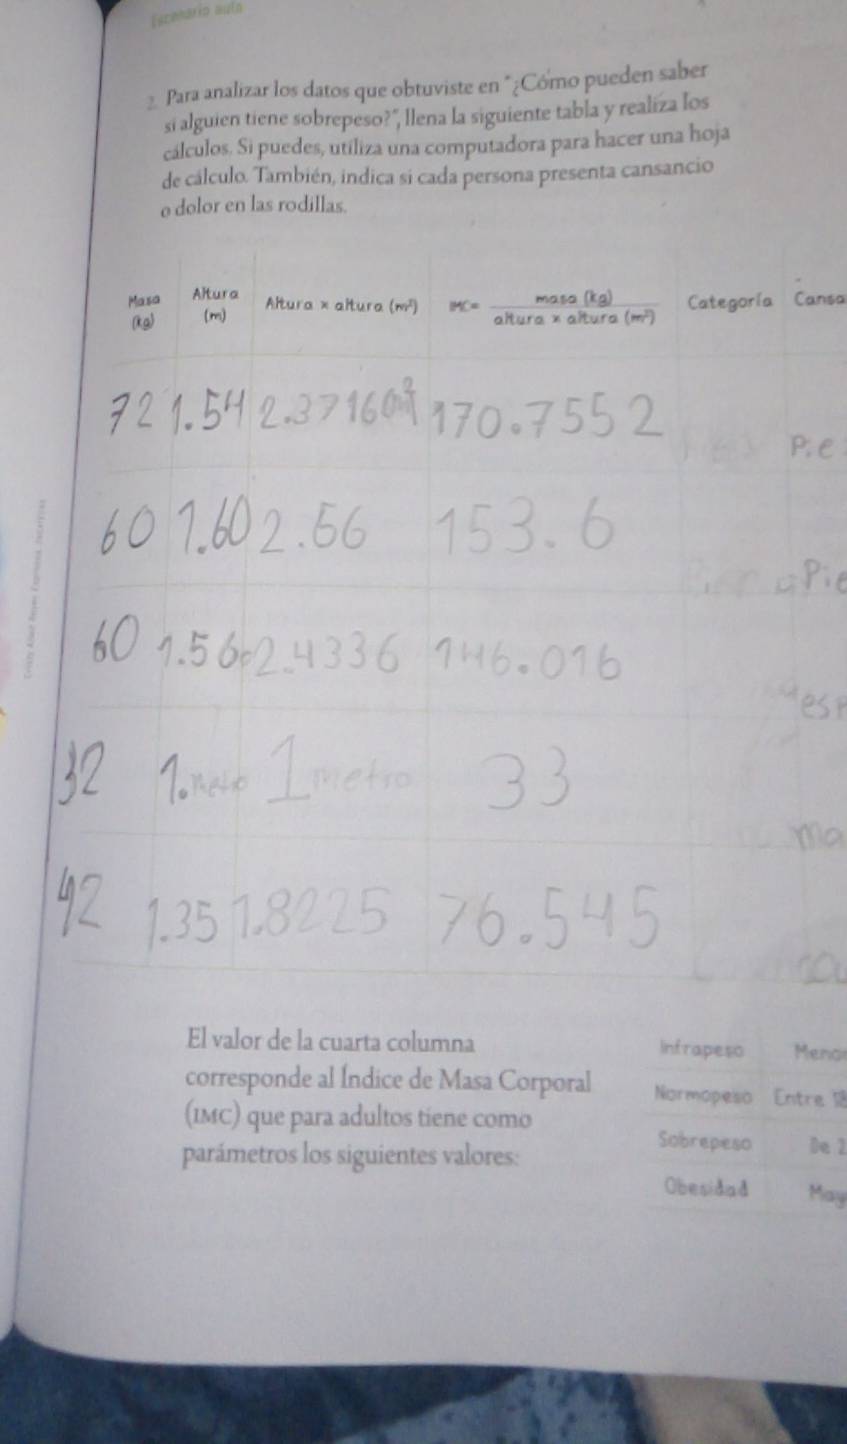 Escenario aula
2. Para analizar los datos que obtuviste en "¿Cómo pueden saber
si alguien tiene sobrepeso?", llena la siguiente tabla y realiza los
cálculos. Si puedes, utiliza una computadora para hacer una hoja
de cálculo. También, indica si cada persona presenta cansancio
o dolor en las rodillas.
Masa (kg) Altura (m) Altura × altura (m²) IMC= masa (kg) / altura × altura (m²) Categoría Cansa
72 1.54 2.3716 170.7552 Pie
60 1.60 2.56 153.6 Pie
60 1.56 2.4336 146.016
32 1. metro 1 metro 33 ma
42 1.35 1.8225 76.545
El valor de la cuarta columna
corresponde al Índice de Masa Corporal
(IMC) que para adultos tiene como
parámetros los siguientes valores:
Infrapeso Meno
Normopeso Entre 18
Sobrepeso De 2
Obesidad May